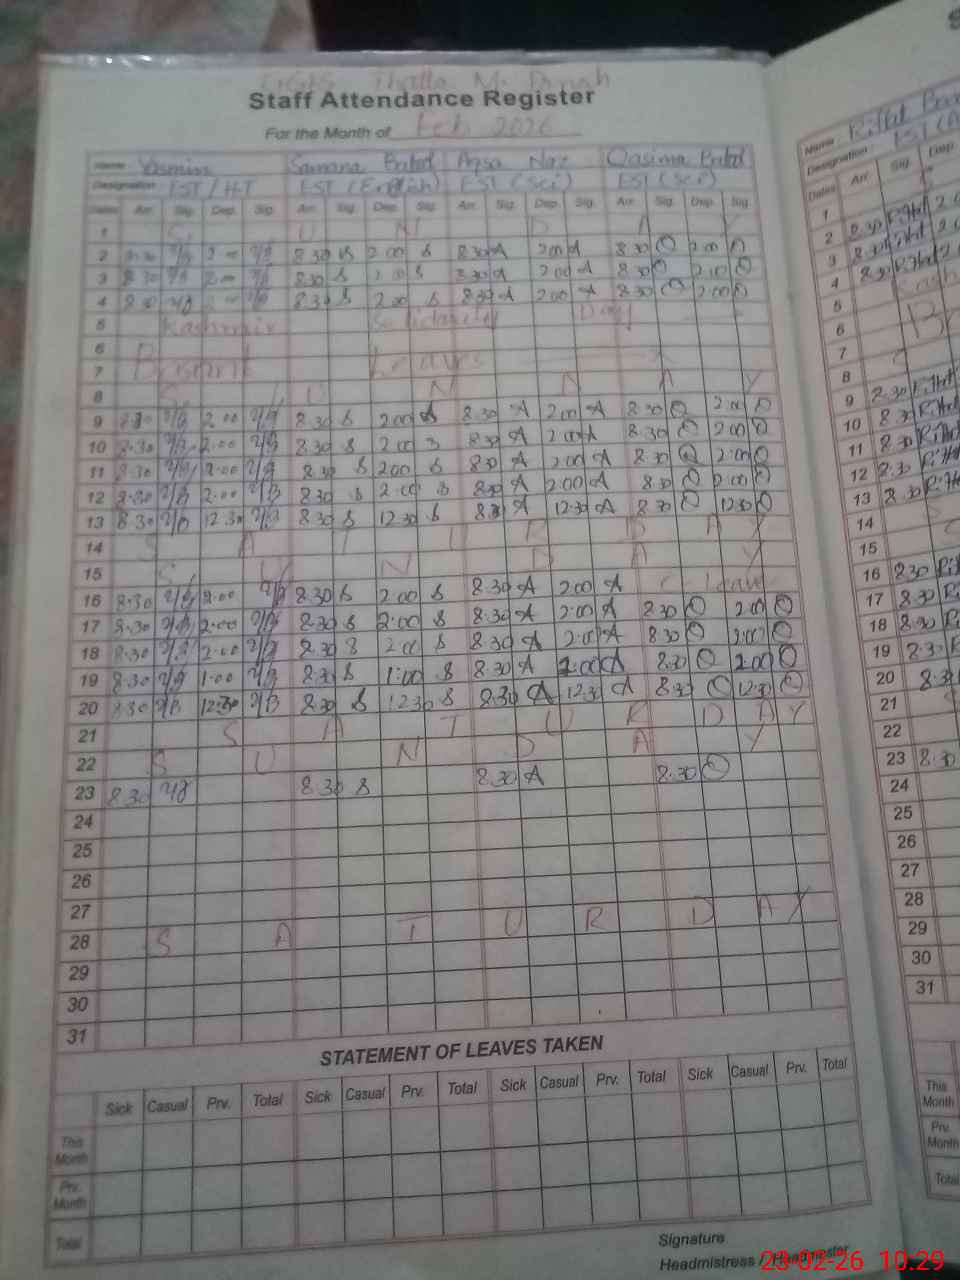 Thatta M. Panah
Staff Attendance Register
For the Month of Feb 2026
Name Yasmin Samana Batol Aqsa Naz Qasima Batol
Designation EST / HT EST (English) EST (Sci) EST (Sci)
Dates Arr. Sig. Dep. Sig. Arr. Sig. Dep. Sig. Arr. Sig. Dep. Sig. Arr. Sig. Dep. Sig.
1 S U N D A Y
2 8.30 2.00 8.30 S 2.00 S 8.30 A 2.00 A 8.30 Q 2.00 Q
3 8.30 2.00 8.30 S 2.00 S 8.30 A 2.00 A 8.30 Q 2.00 Q
4 8.30 2.00 8.30 S 2.00 S 8.30 A 2.00 A 8.30 Q 2.00 Q
5 Kashmir Solidarity Day
6
7 Basant Leaves
8 S U N D A Y
9 8.30 2.00 8.30 S 2.00 S 8.30 A 2.00 A 8.30 Q 2.00 Q
10 8.30 2.00 8.30 S 2.00 S 8.30 A 2.00 A 8.30 Q 2.00 Q
11 8.30 2.00 8.30 S 2.00 S 8.30 A 2.00 A 8.30 Q 2.00 Q
12 8.30 2.00 8.30 S 2.00 S 8.30 A 2.00 A 8.30 Q 2.00 Q
13 8.30 12.30 8.30 S 12.30 S 8.30 A 12.30 A 8.30 Q 12.30 Q
14 S A T U R D A Y
15 S U N D A Y
16 8.30 2.00 8.30 S 2.00 S 8.30 A 2.00 A C. leave
17 8.30 2.00 8.30 S 2.00 S 8.30 A 2.00 A 8.30 Q 2.00 Q
18 8.30 2.00 8.30 S 2.00 S 8.30 A 2.00 A 8.30 Q 2.00 Q
19 8.30 1.00 8.30 S 1.00 S 8.30 A 1.00 A 8.30 Q 2.00 Q
20 8.30 12.30 8.30 S 12.30 S 8.30 A 12.30 A 8.30 Q 12.30 Q
21 S A T U R D A Y
22 S U N D A Y
23 8.30 8.30 S 8.30 A 8.30 Q
24
25
26
27
28 S A T U R D A Y
29
30
31
STATEMENT OF LEAVES TAKEN
Sick Casual Prv. Total Sick Casual Prv. Total Sick Casual Prv. Total Sick Casual Prv. Total
This Month
Prv. Month
Total
Signature
Headmistress / Headmaster
Name Riffat
Designation: EST (A
Dates Arr. Sig. Dep.
1
2 8.30 Riffat 2.0
3 8.30 Riffat 2.0
4 8.30 Riffat 2.0
5 Kash
6
7
8
9 8.30 Riffat
10 8.30 Riffat
11 8.30 Riffat
12 8.30 Riffat
13 8.30
14
15
16 8.30
17 8.30
18 8.30
19 8.30
20 8.30
21
22
23 8.30
24
25
26
27
28
29
30
31
This Month
Prv. Month
Total
23-02-26 10.29